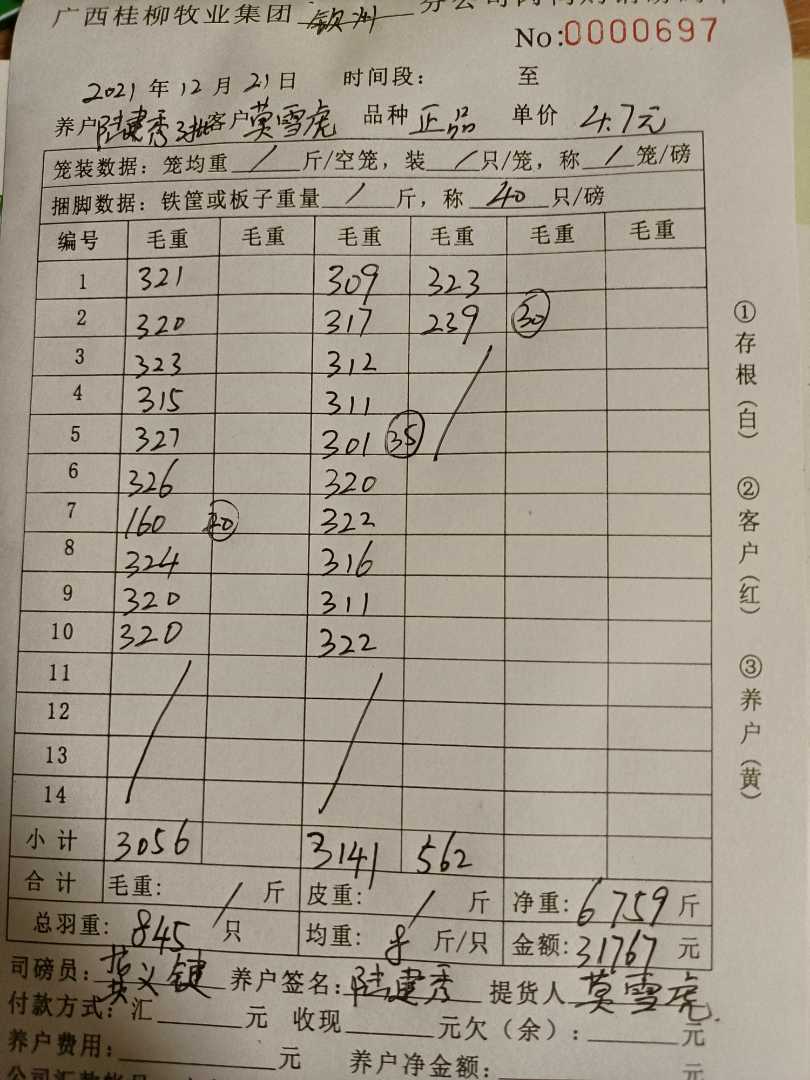 广西桂柳牧业集团 钦州 分公司
No:0000697
2021 年 12 月 21 日 时间段: 至
养户 陆建秀3批 客户 莫雪虎 品种 正品 单价 4.7元
笼装数据: 笼均重 / 斤/空笼, 装 / 只/笼, 称 / 笼/磅
捆脚数据: 铁筐或板子重量 / 斤, 称 40 只/磅
编号 毛重 毛重 毛重 毛重 毛重 毛重
1 321 309 323
2 320 317 239 30
3 323 312 /
4 315 311
5 327 301 35
6 326 320
7 160 20 322
8 324 316
9 320 311
10 320 322
11 / /
12
13
14
小计 3056 3141 562
合计 毛重: / 斤 皮重: / 斤 净重: 6759 斤
总羽重: 845 只 均重: 8 斤/只 金额: 31767 元
司磅员: 义键 养户签名: 陆建秀 提货人 莫雪虎
付款方式: 汇 元 收现 元欠(余): 元
养户费用: 元 养户净金额: 元
①存根(白) ②客户(红) ③养户(黄)